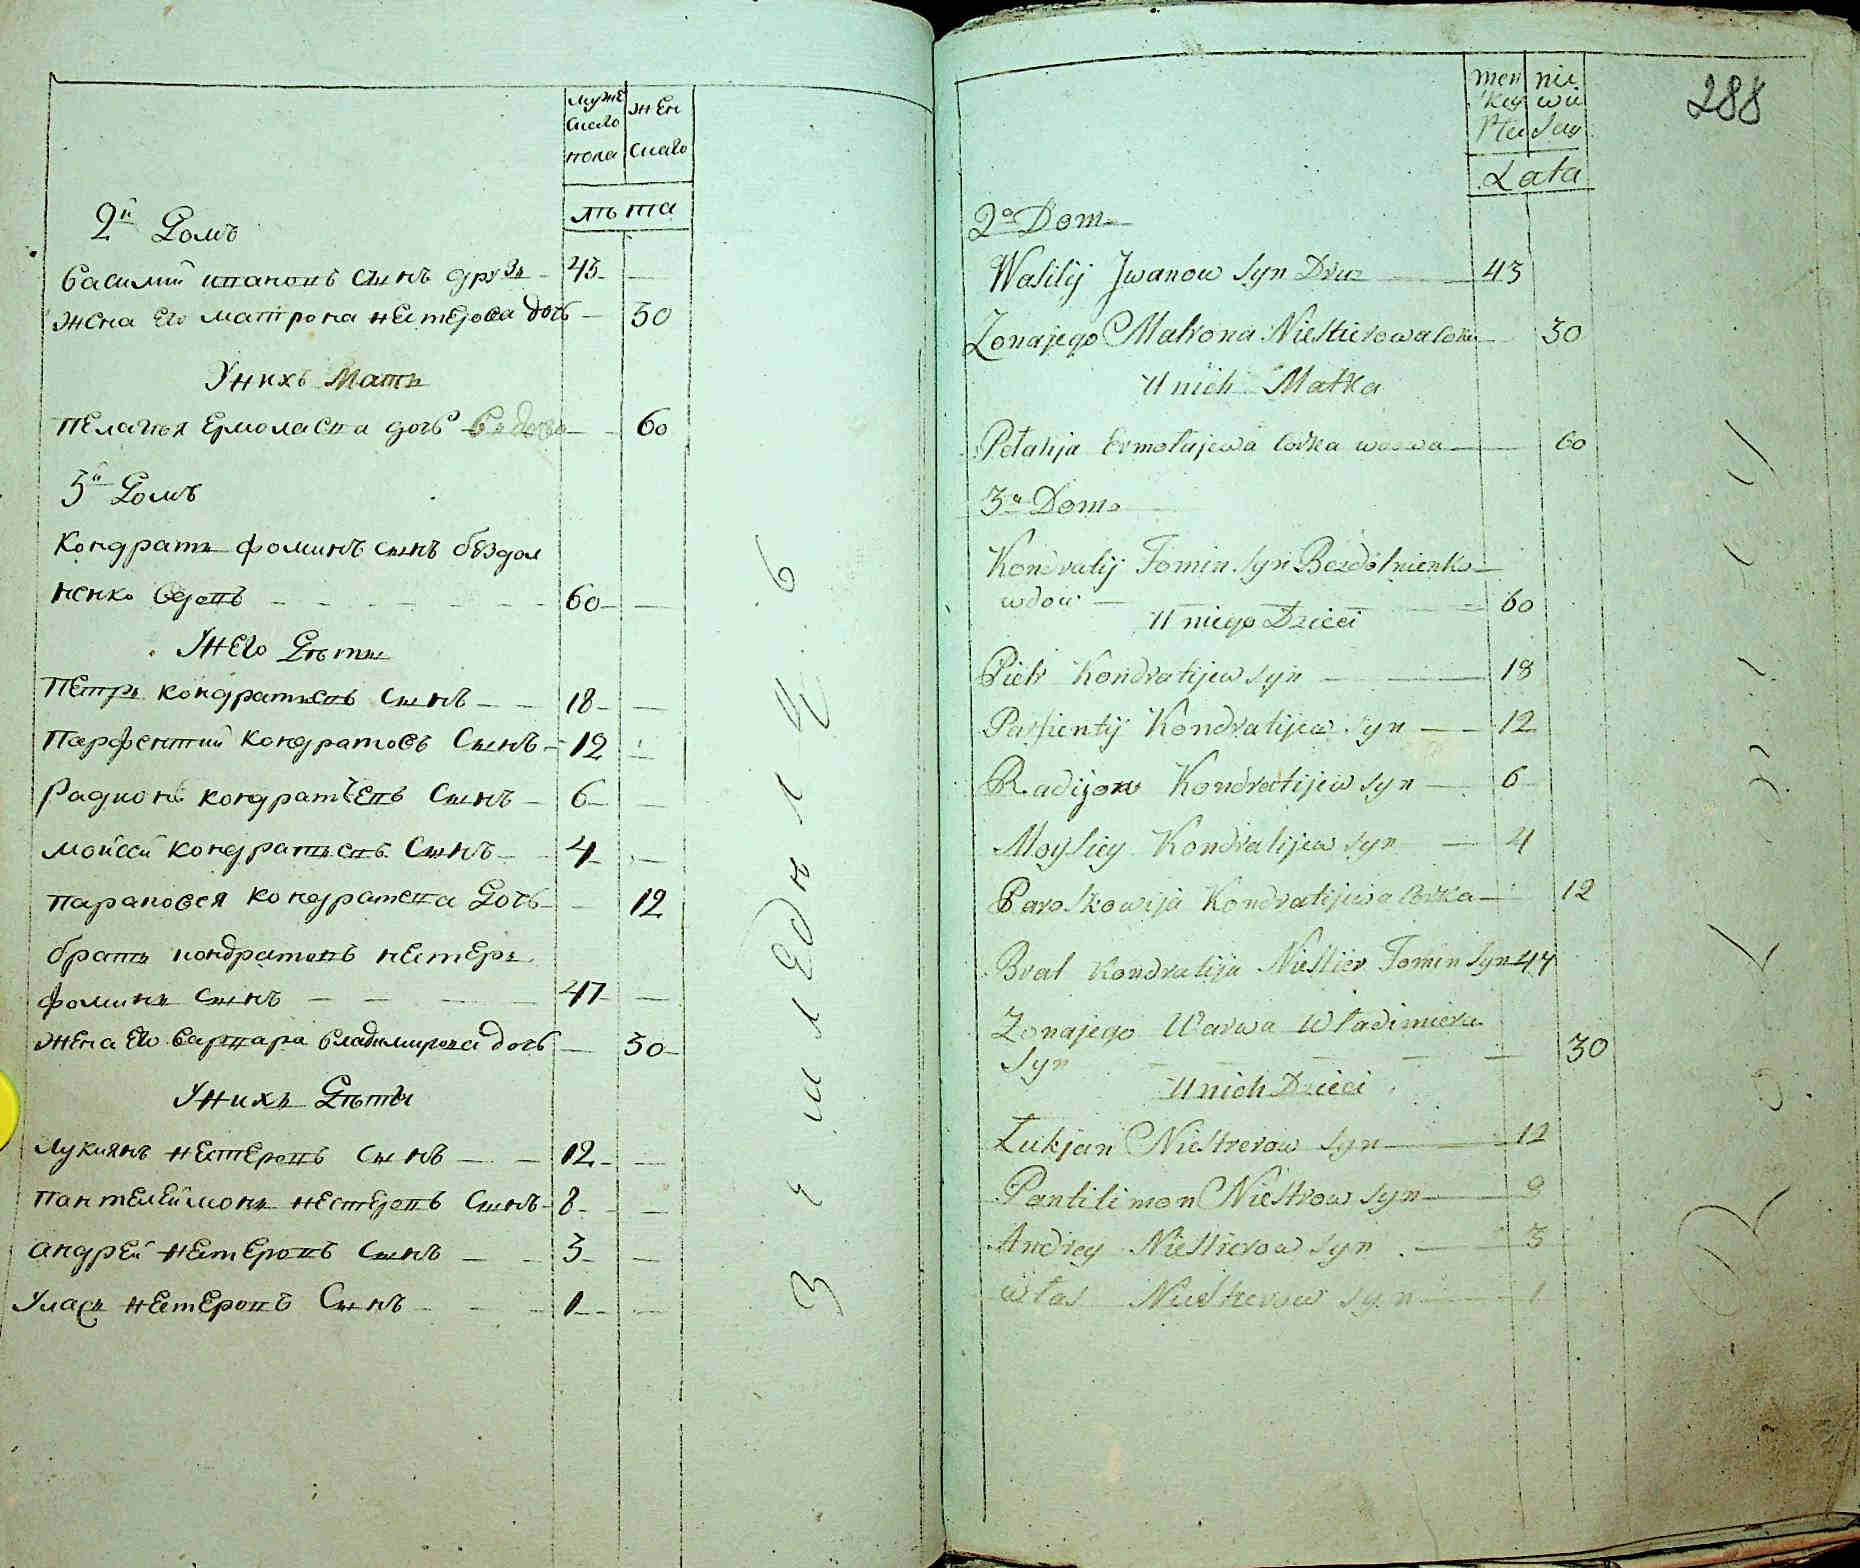 муже
скаго
пола
жен
скаго
лѣта
2й Домъ
василий ивановъ сынъ друзь 43
жена его матрона нестерова дочь 30
У нихъ Мать
пелагѣя ермолаева дочь вдова 60
3й Домъ
кондратъ фоминъ сынъ бездол
ненко вдовъ 60
У него Дѣти
Петръ кондратьевъ Сынъ 18
Парфентий кондратовъ Сынъ 12
Радионъ кондратьевъ Сынъ 6
мойсей кондратьевъ Сынъ 4
парасковея кондратева Дочь 12
братъ кондратовъ нестеръ
фоминъ Сынъ 47
жена его варвара владимирова дочь 30
У нихъ Дѣти
лукиянъ нестеровъ Сынъ 12
пантелеймонъ нестеровъ Сынъ 8
андрей нестеровъ Сынъ 3
Уласъ нестеровъ Сынъ 1
288
męż
kiey
Płci
niewie
sciey
Lata
2o Dom
Wasilij Jwanow syn Druz 43
Zona jego Matrona Niestierowa corka 30
U nich Matka
Pełahija Ermołajewa corka wdowa 60
3u Dom
Kondratij Fomin syn Bezdolnienko
wdow 60
U niego Dzieci
Pietr Kondratijew syn 18
Parfientij Kondratijew syn 12
Radijon Kondratijew syn 6
Moysiey Kondratijew syn 4
Paroskowija Kondratijewa corka 12
Brat Kondratija Niestier Fomin syn 47
Zona jego Warwa Władimiera
syn 30
U nich Dzieci
Łukjan Niestierow syn 12
Pantilimon Niestrow syn 8
Andrey Niestierow syn 3
Włas Niestierow syn 1